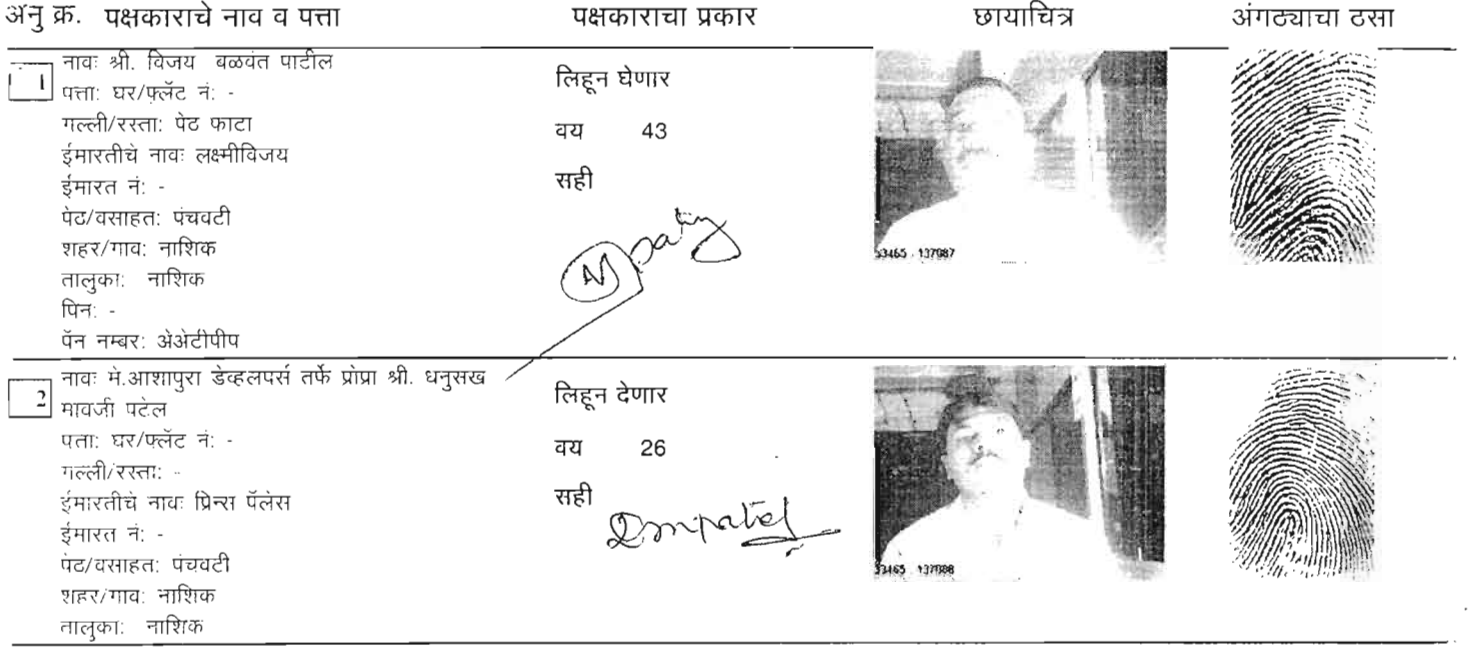 अनु क्र. पक्षकाराचे नाव व पत्ता पक्षकाराचा प्रकार छायाचित्र अंगठ्याचा ठसा
1
नावः श्री. विजय बळवंत पाटील
पत्ताः घर/फ्लॅट नंः -
गल्ली/रस्ताः पेठ फाटा
ईमारतीचे नावः लक्ष्मीविजय
ईमारत नंः -
पेठ/वसाहतः पंचवटी
शहर/गावः नाशिक
तालुकाः नाशिक
पिनः -
पॅन नम्बरः अेअेटीपीप
लिहून घेणार
वय 43
सही
33465 137087
2
नावः मे.आशापुरा डेव्हलपर्स तर्फे प्रोप्रा श्री. धनुसख
मावजी पटेल
पत्ताः घर/फ्लॅट नंः -
गल्ली/रस्ताः -
ईमारतीचे नावः प्रिन्स पॅलेस
ईमारत नंः -
पेठ/वसाहतः पंचवटी
शहर/गावः नाशिक
तालुकाः नाशिक
लिहून देणार
वय 26
सही
Dmpatel
33465 137088